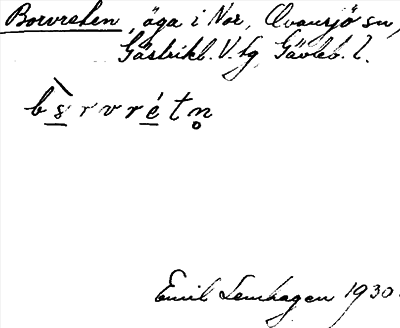 Borvreten, äga i Nor, Ovansjö sn,
Gästrikl. V. tg, Gävleb. l.
bs̲rvré̲tn̥
Emil Lenhagen 1930.